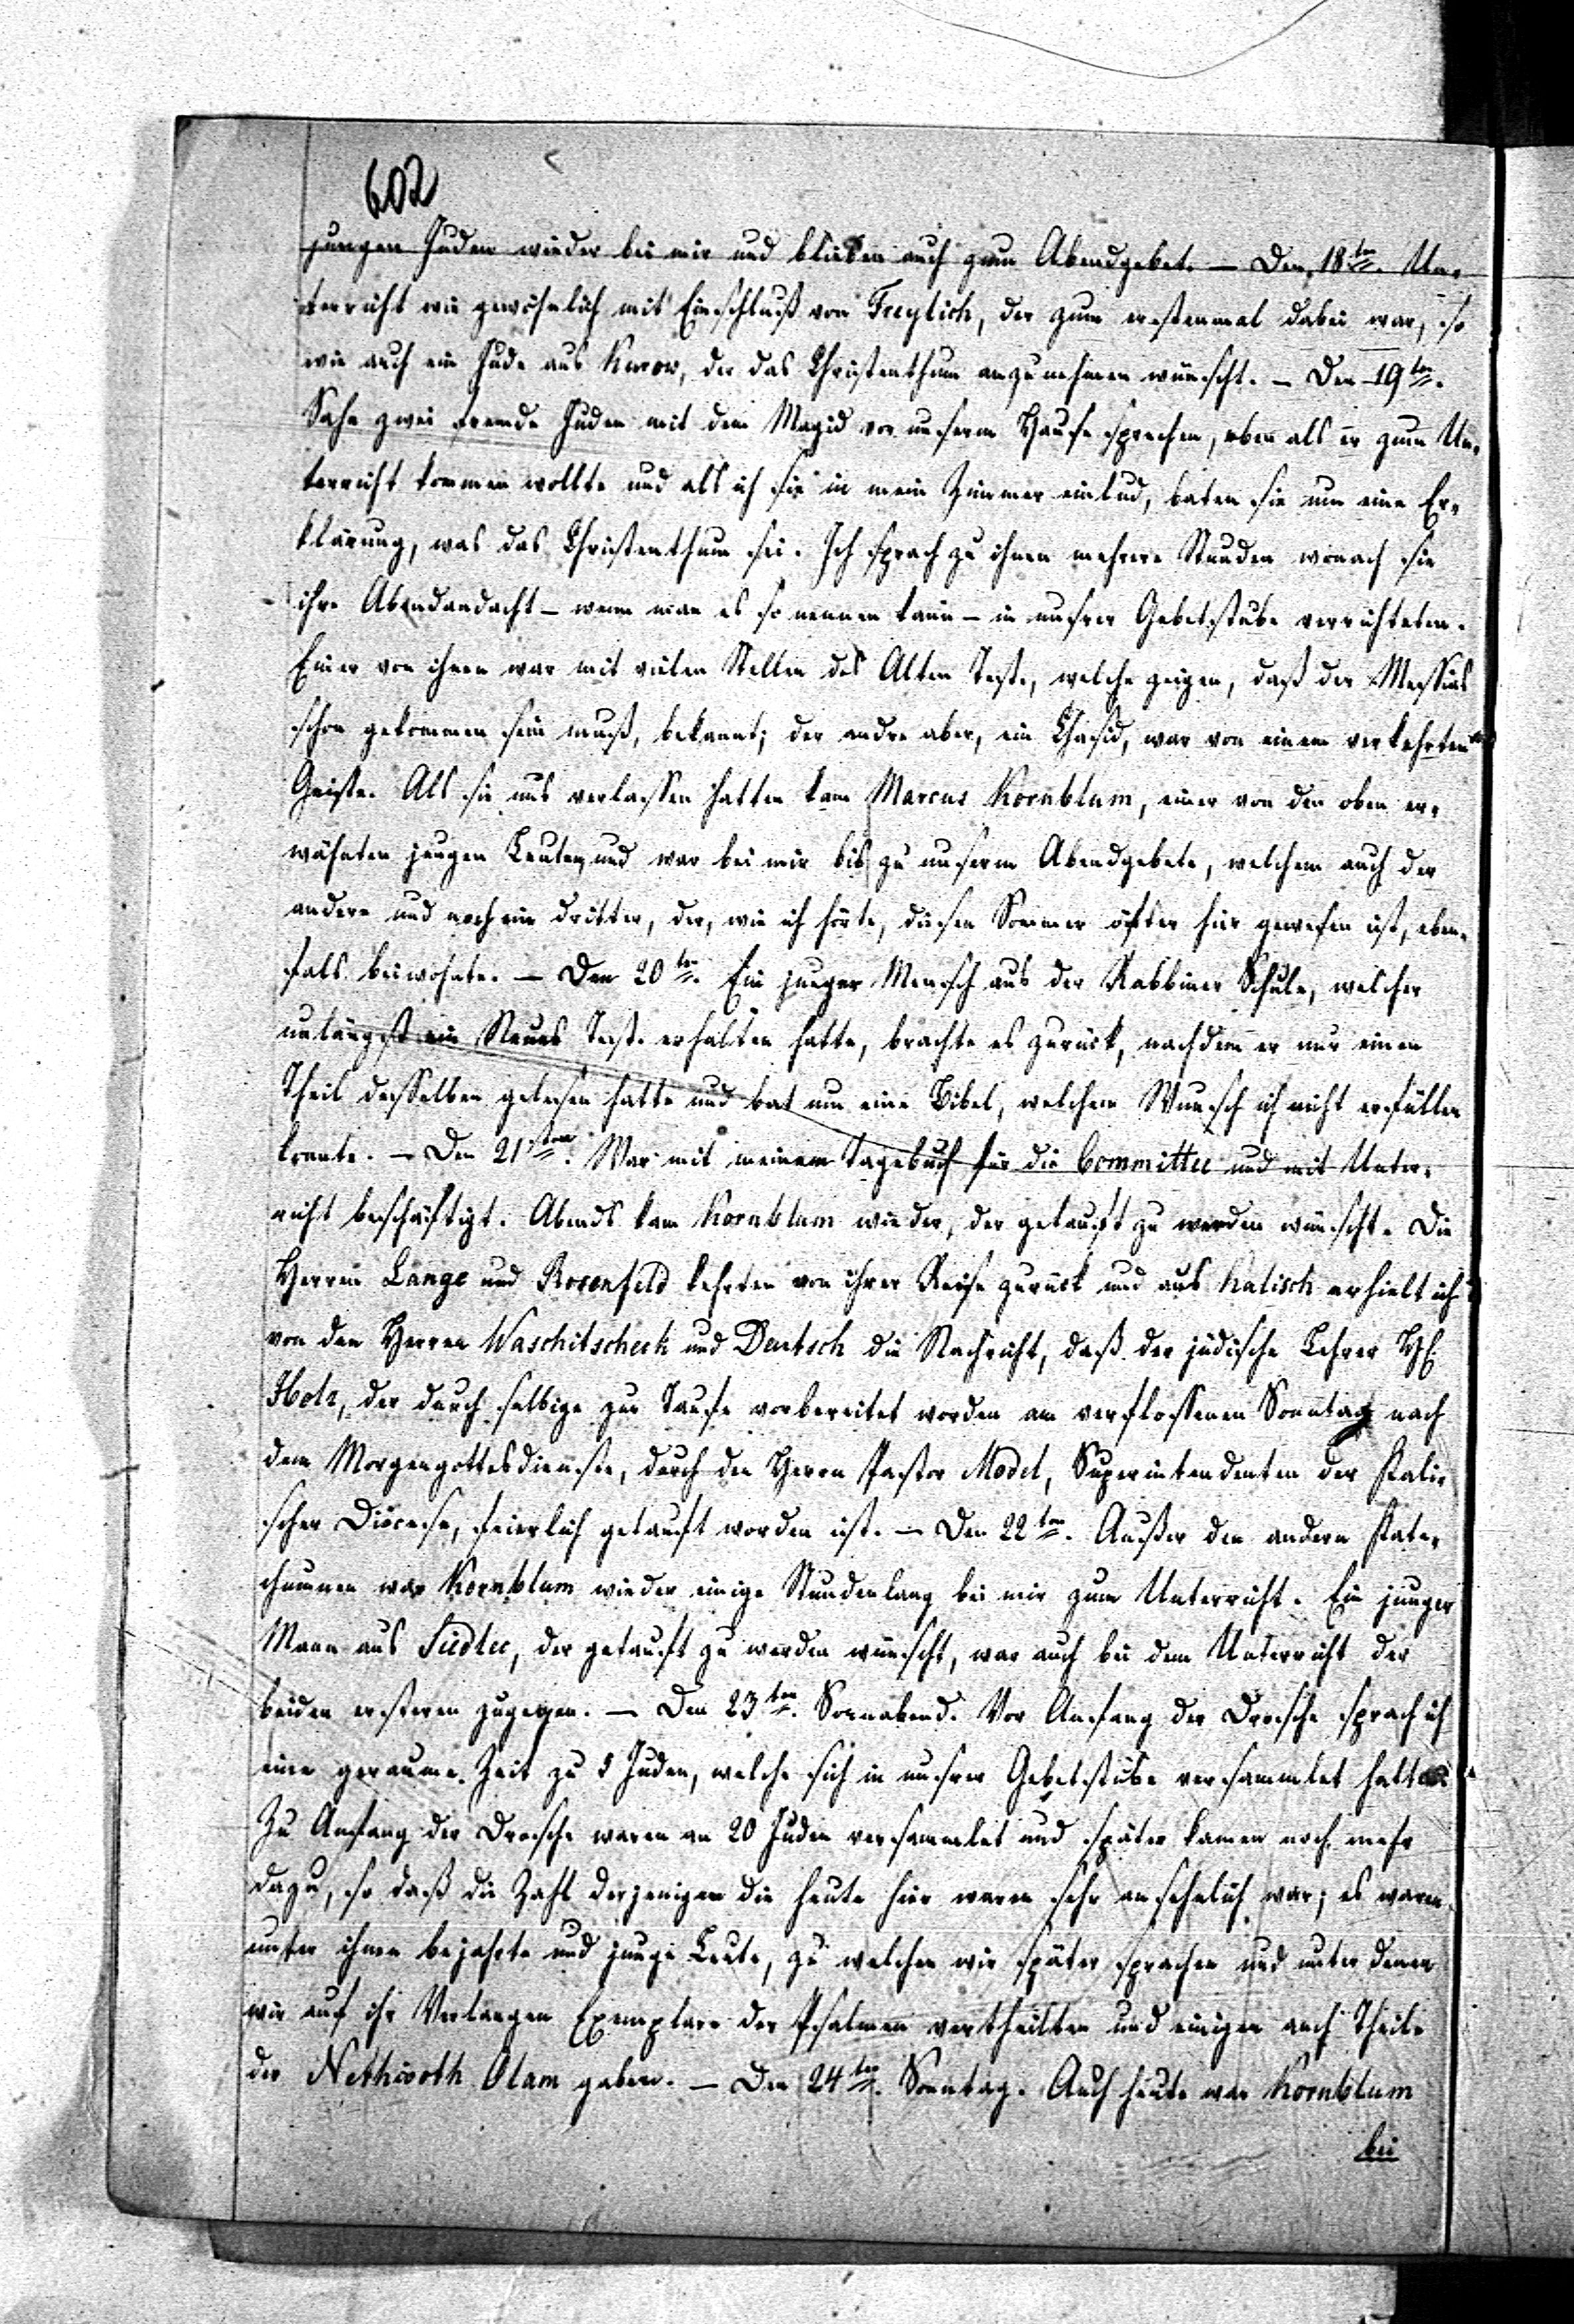 602
jungen Juden wieder bei mir und blieben auch zum Abendgebet. — Den 18ten. Un-
terricht wie gewöhnlich mit Einschluß von Freylich, der zum erstenmal dabei war, so
wie auch ein Jude aus Kurow, der das Christenthum anzunehmen wünscht. — Den 19ten.
Sahe zwei fremde Juden mit dem Magid vor unserm Hause sprechen, eben als er zum Un-
terricht kommen wollte und als ich sie in mein Zimmer einlud, baten sie um eine Er-
klärung, was das Christenthum sei. Ich sprach zu ihnen mehrere Stunden wonach sie
ihre Abendandacht — wenn man es so nennen kann — in unsrer Gebetsstube verrichteten.
Einer von ihnen war mit vielen Stellen des Alten Test., welche zeigen, daß der Messias
schon gekommen sein muß, bekannt; der andre aber, ein Chasid, war von einem verkehrten
Geiste. Als sie uns verlassen hatten kam Marcus Kornblum, einer von den oben er-
wähnten jungen Leuten, und war bei mir bis zu unserm Abendgebete, welchem auch der
andere und noch ein dritter, der, wie ich hörte, diesen Sommer öfter hier gewesen ist, eben-
fals beiwohnte. — Den 20ten. Ein junger Mensch aus der Rabbiner Schule, welcher
unlängst ein Neues Test. erhalten hatte, brachte es zurück, nachdem er nur einen
Theil desselben gelesen hatte und bat um eine Bibel, welchem Wunsch ich nicht erfüllen
konnte. — Den 21sten. War mit meinem Tagebuch für die Committee und mit Unter-
richt beschäftigt. Abends kam Kornblum wieder, der getauft zu werden wünscht. Die
Herren Lange und Rosenfeld kehrten von ihrer Reise zurück und aus Kalisch erhielt ich
von den Herren Waschitscheck und Deutsch die Nachricht, daß der jüdische Lehrer H
Holz, der durch selbige zur Taufe vorbereitet worden am verflossenen Sonntag nach
dem Morgengottesdienste, durch den Herrn Pastor Model, Superintendenten der Kali-
scher Diöcese, feierlich getauft worden ist. — Den 22ten. Außer den andern Kate-
chumenen war Kornblum wieder einige Stundenlang bei mir zum Unterricht. Ein junger
Mann aus Siedlec, der getauft zu werden wünscht, war auch bei dem Unterricht der
beiden ersteren zugegen. — Den 23ten. Sonnabend. Vor Anfang der Drosche sprach ich
eine geraume Zeit zu 5 Juden, welche sich in unsrer Gebetsstube versammlet hatten
Zu Anfang der Drosche waren an 20 Juden versammlet und später kamen noch mehr
dazu, so daß die Zahl derjenigen die heute hier waren sehr ansehnlich war; es waren
unter ihnen bejahrte und junge Leute, zu welchen wir später sprachen und unter denen
wir auf ihr Verlangen Exemplare der Psalmen vertheilten und einigen auch Theile
der Nethivoth Olam gaben. — Den 24ten. Sonntag. Auch heute war Kornblum
bei